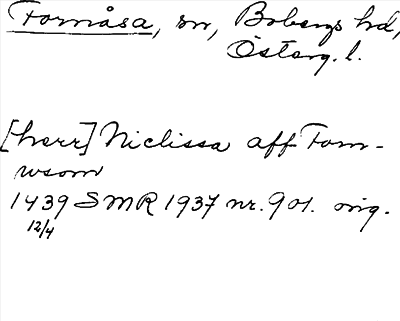 Fornåsa, sn, Bobergs hd,
Österg. l.
[herr] Niclissa aff Forn-
wsom
1439 SMR 1937 nr. 901. orig.
12/4